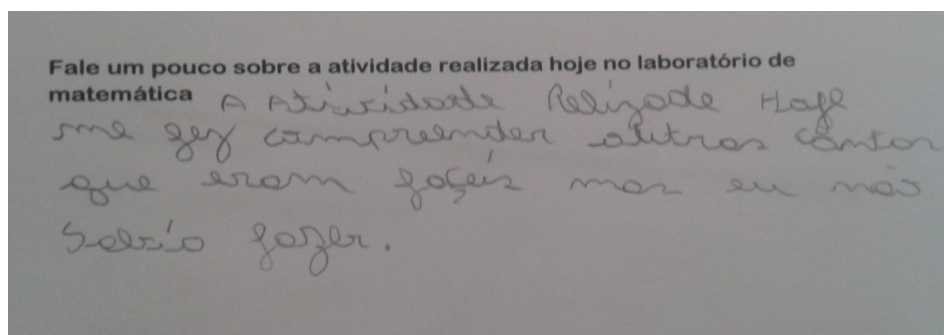 Fale um pouco sobre a atividade realizada hoje no laboratório de
matemática A Atividade Relizade Hoje
me fez compreender outros contos
que eram façeis mas eu não
Sabio fazer.